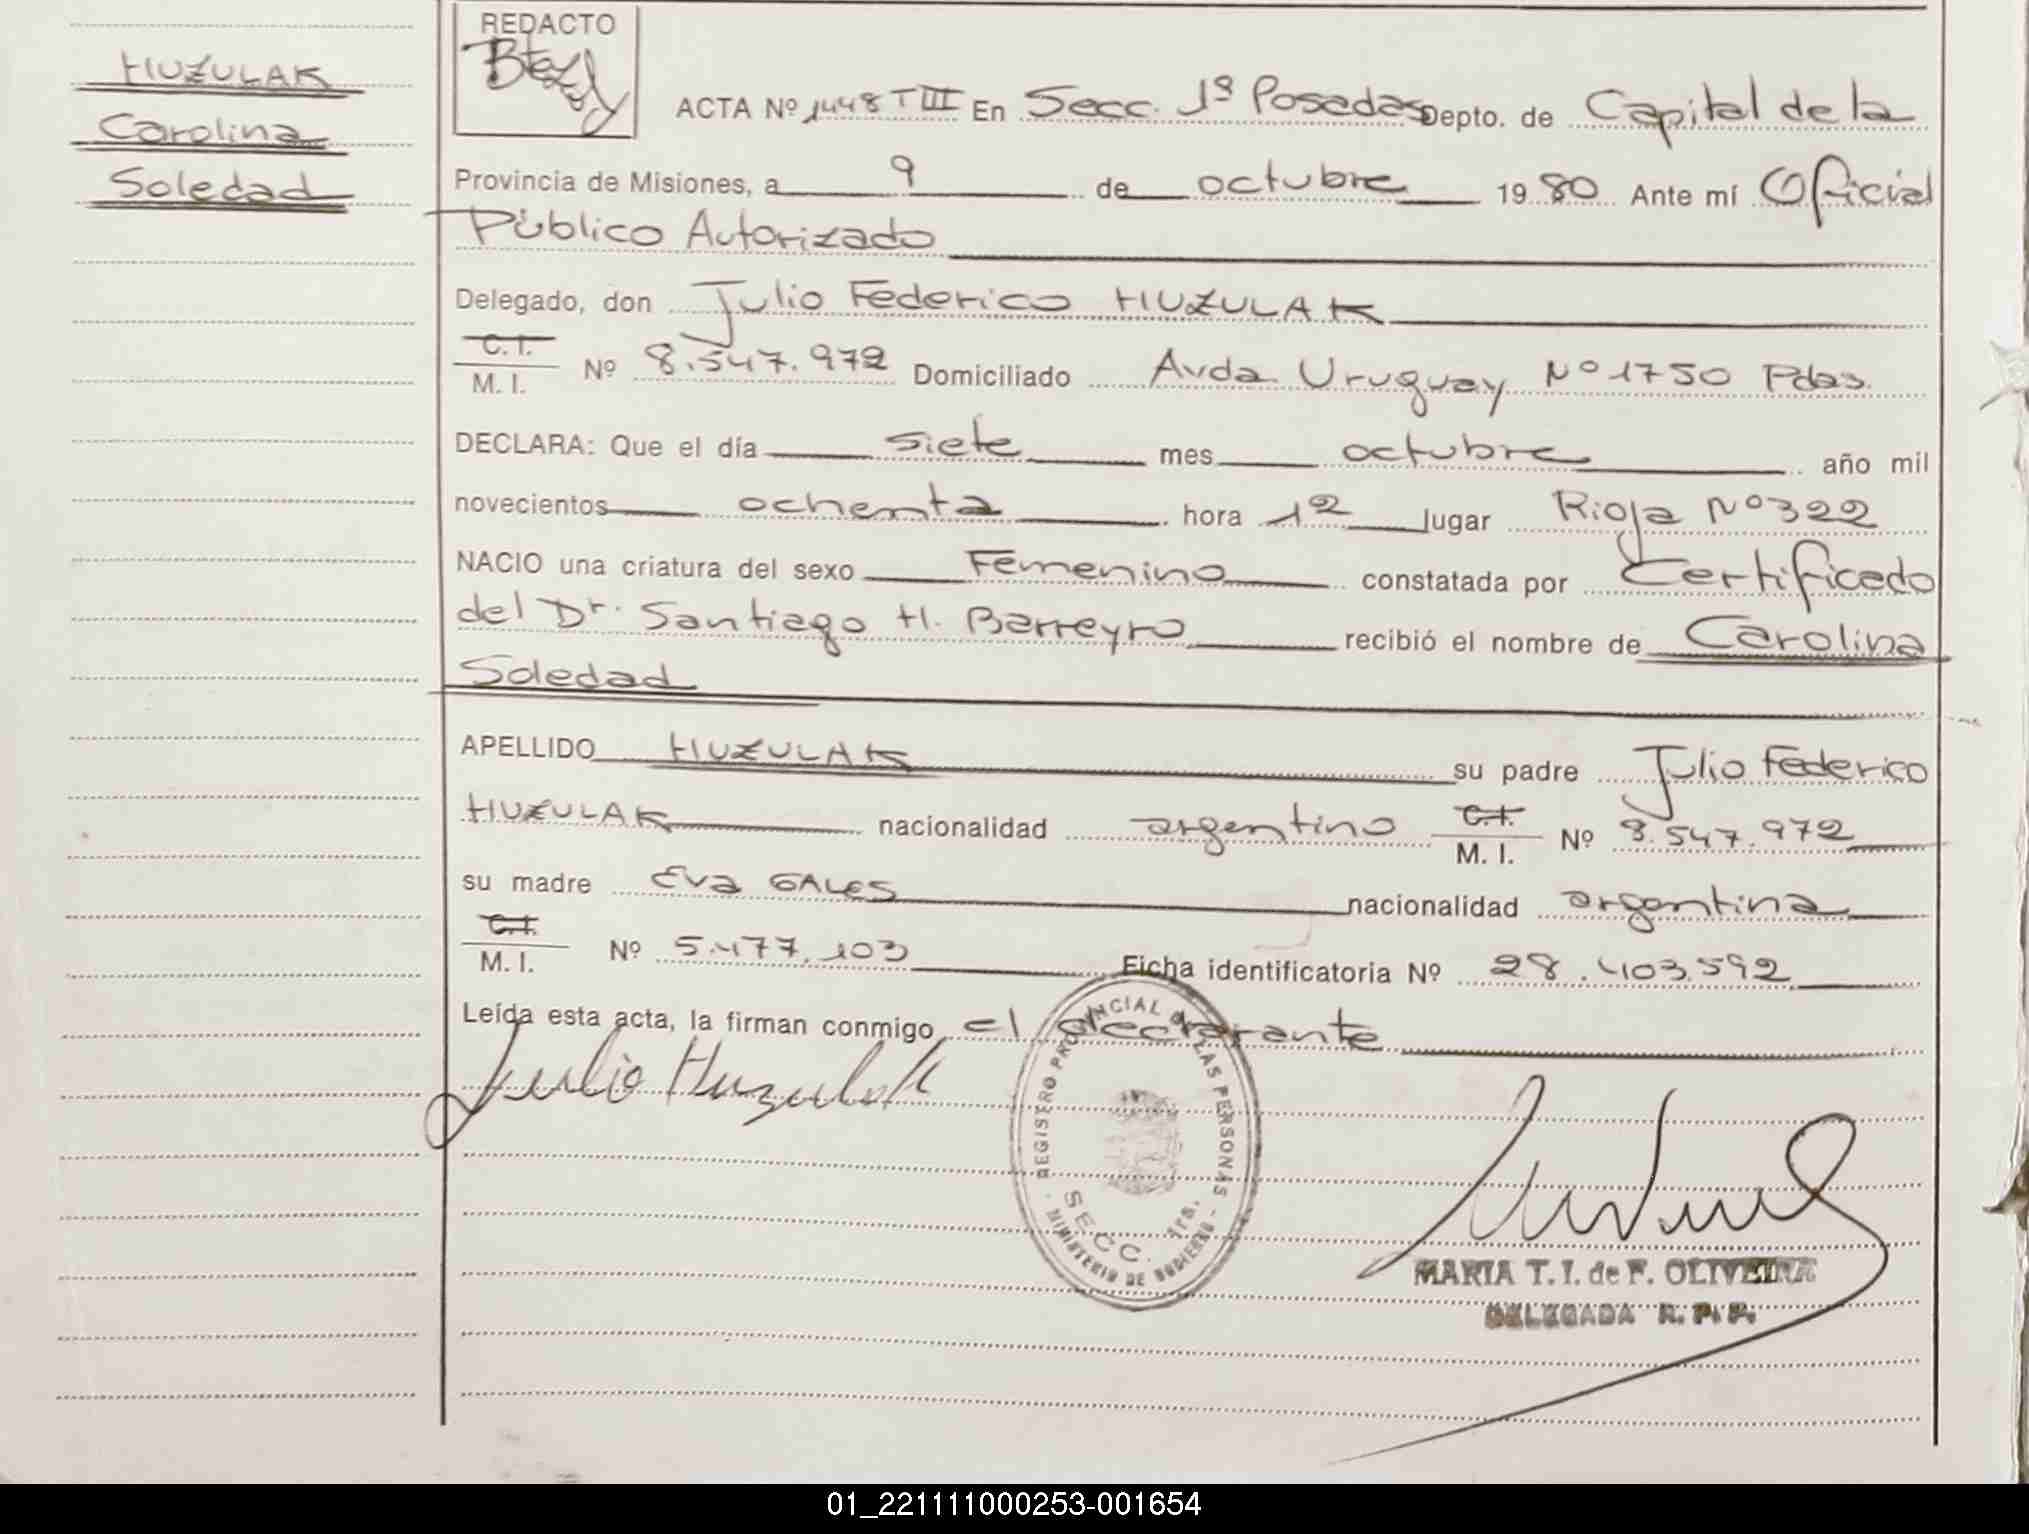 HUZULAK
Carolina
Soledad
REDACTO
ACTA Nº 1448 T III En Secc. 1ª Posadas Depto. de Capital de la
Provincia de Misiones, a 9 de octubre 1980 Ante mí Oficial
Público Autorizado
Delegado, don Julio Federico HUZULAK
C. I.
M. I. Nº 8.547.972 Domiciliado Avda Uruguay Nº 1750 Pdas.
DECLARA: Que el día siete mes octubre año mil
novecientos ochenta hora 12 lugar Rioja Nº 322
NACIO una criatura del sexo Femenino constatada por Certificado
del Dr. Santiago H. Barreyro recibió el nombre de Carolina
Soledad
APELLIDO HUZULAK su padre Julio Federico
HUZULAK nacionalidad argentino C. I. M. I. Nº 8.547.972
su madre Eva GALES nacionalidad argentina
C. I.
M. I. Nº 5.477.103 Ficha identificatoria Nº 28.403.592
Leída esta acta, la firman conmigo el declarante
Julio Huzulak
REGISTRO PROVINCIAL DE LAS PERSONAS
SECC. 1ra.
MINISTERIO DE GOBIERNO
MARIA T. I. de F. OLIVEIRA
DELEGADA R. P. P.
01_221111000253-001654